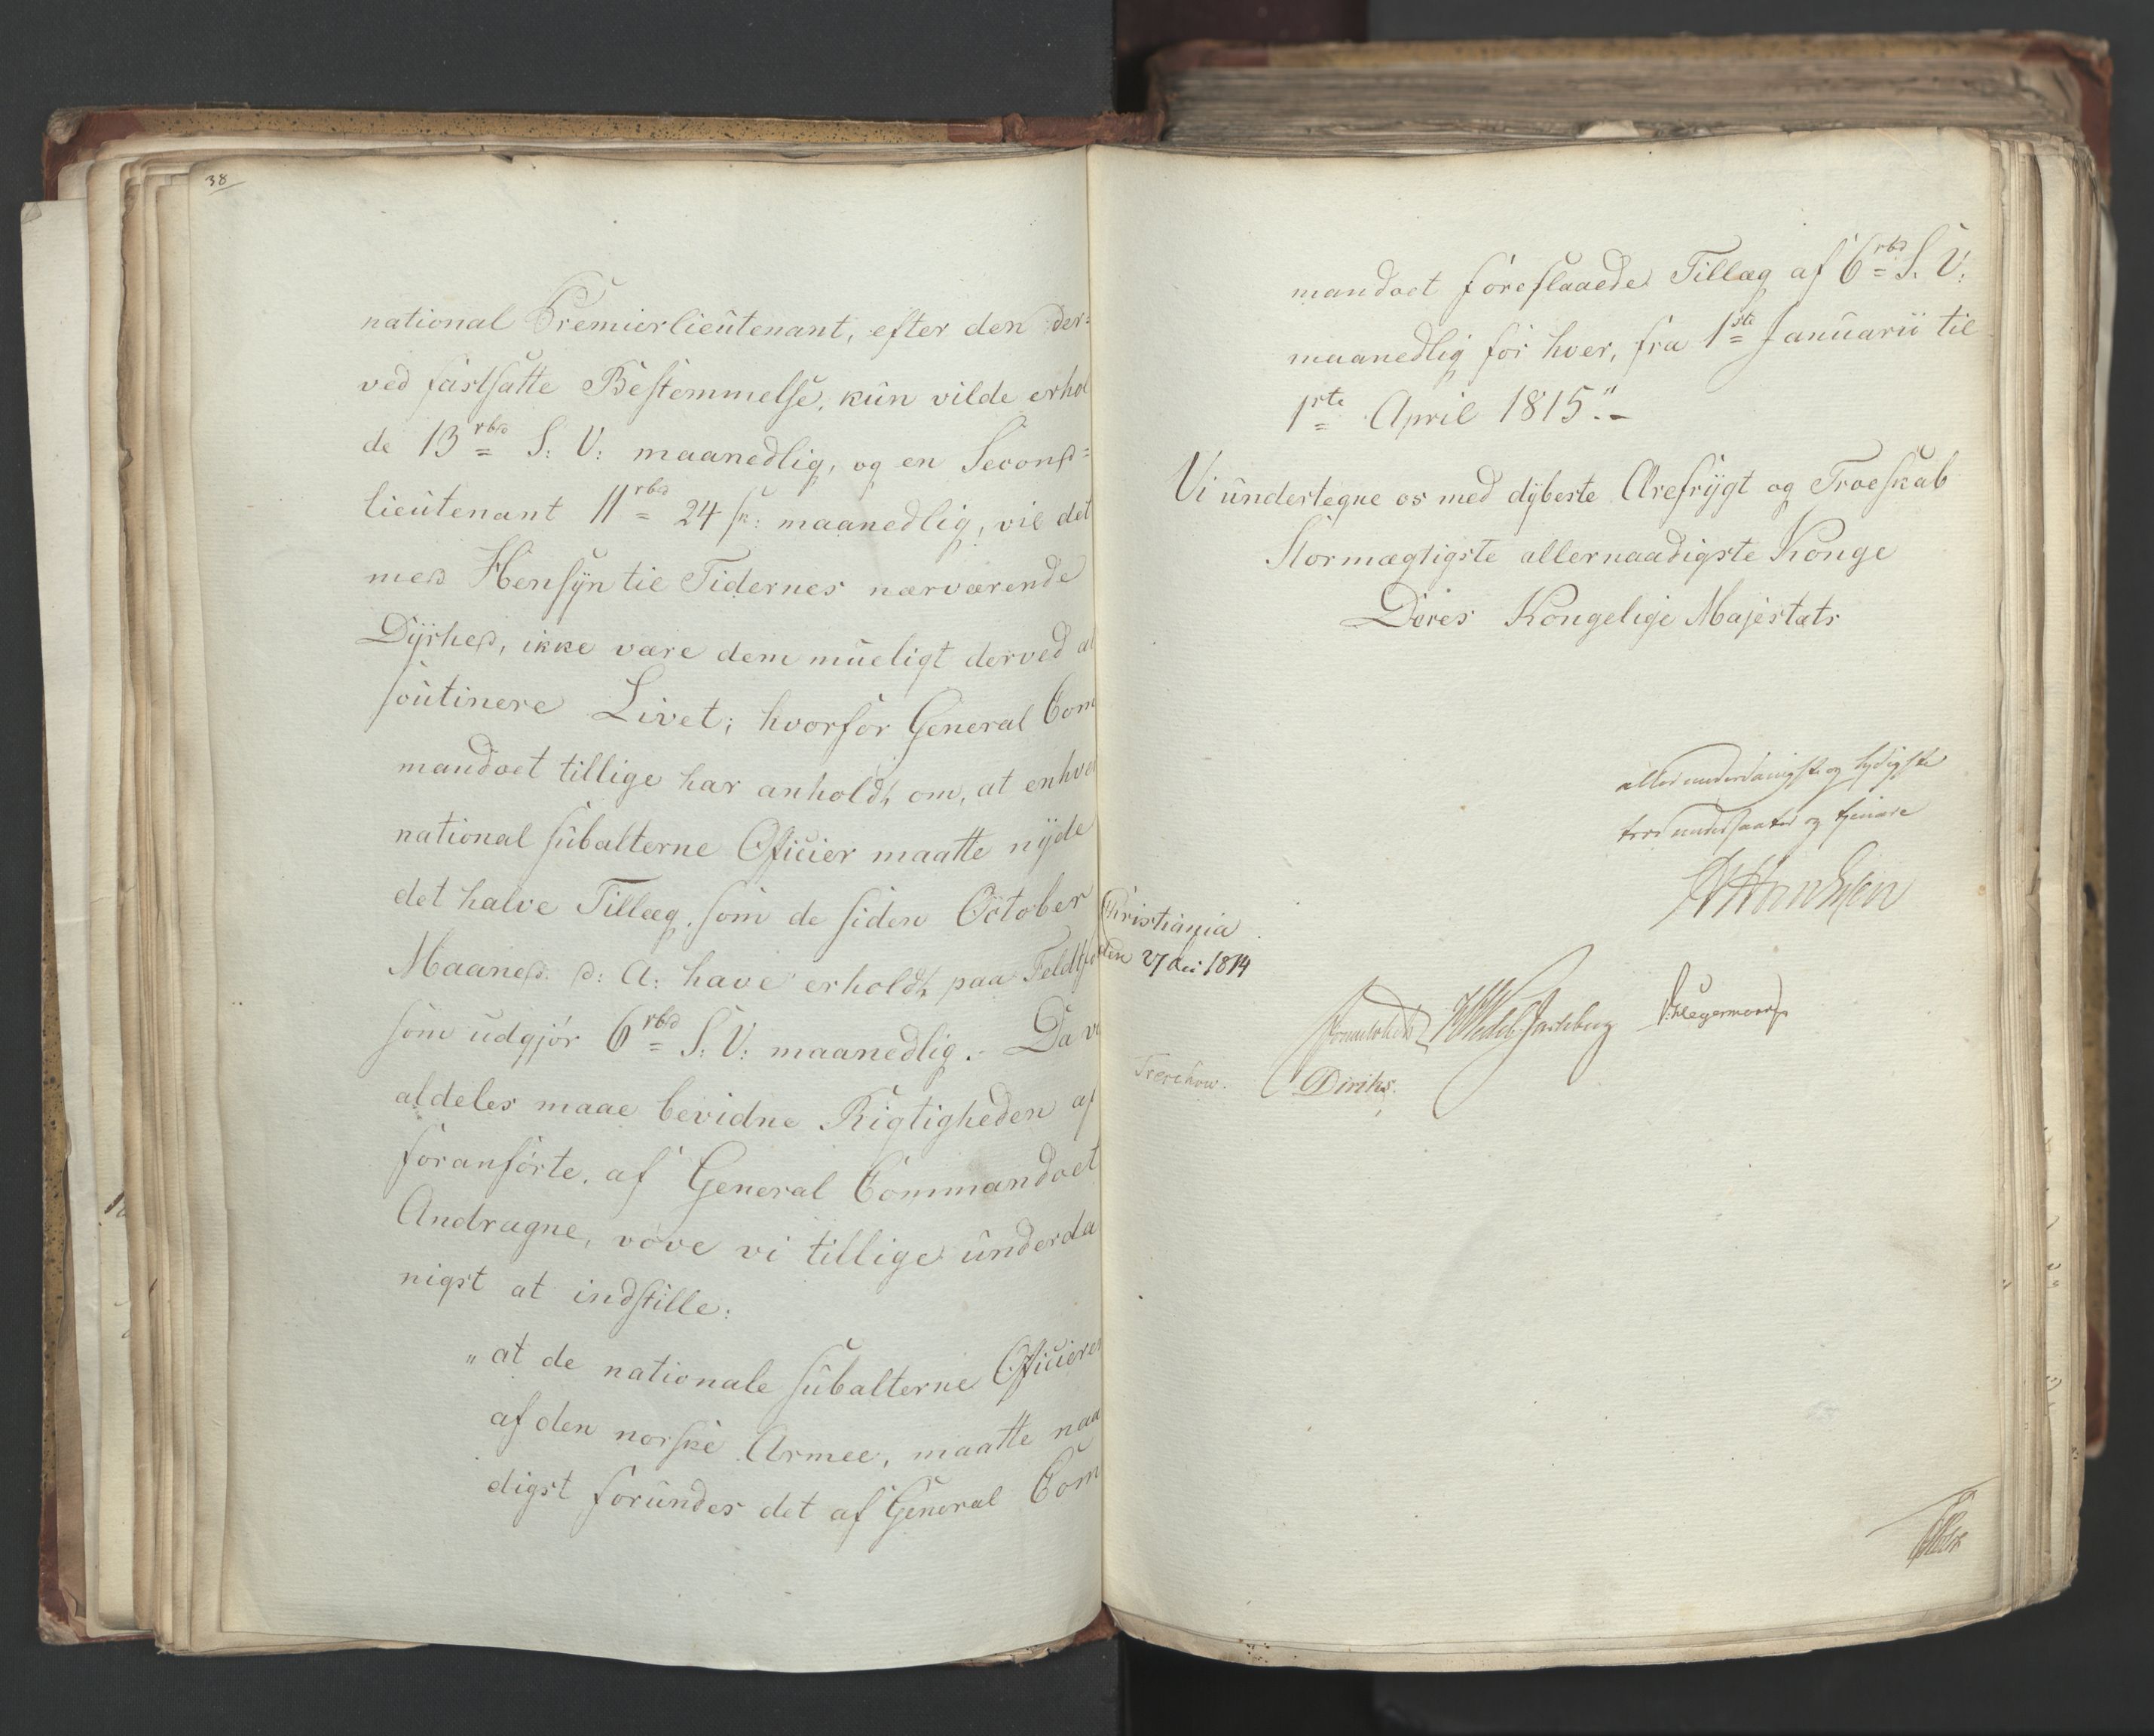 38
national Premierlieutenant, efter den der-
ved fastsatte Bestemmelse, kun vilde erhol
de 13 rbd S: V: maanedlig, og en Second-
lieutenant 11 rbd 24 sk: maanedlig, vil det
med Hensyn til Tidernes nærværende
Dyrhed, ikke være dem mueligt derved at
soutinere Livet; hvorfor General Com
mandoet tillige har anholdt om, at enhver
national subalterne Officier maatte nyde
det halve Tillæg, som de siden October
Maaned d: A: have erholdt paa Feldtfod
som udgjør 6 rbd S: V: maanedlig.- Da vi
aldeles maae bevidne Rigtigheden af
foranførte, af General Commandoet
Andragne, vove vi tillige underda
nigst at indstille:
"at de nationale subalterne Officierer
af den norske Armee, maatte naa
digst forundes det af General Com
mandoet foreslaaede Tillæg af 6 rbd S. V.
maanedlig for hver, fra 1ste Januarii til
1ste April 1815."-
Vi undertegne os med dybeste Ærefrygt og Troeskab
Stormægtigste allernaadigste Konge
Deres Kongelige Majestæts
allerunderdanigste og lydigste
troe undersaatter og tjenere
Christiania
den 27 dec 1814
Sommerhielm
HWedel Jarlsberg
Hegermann
Treschow.
Diriks.